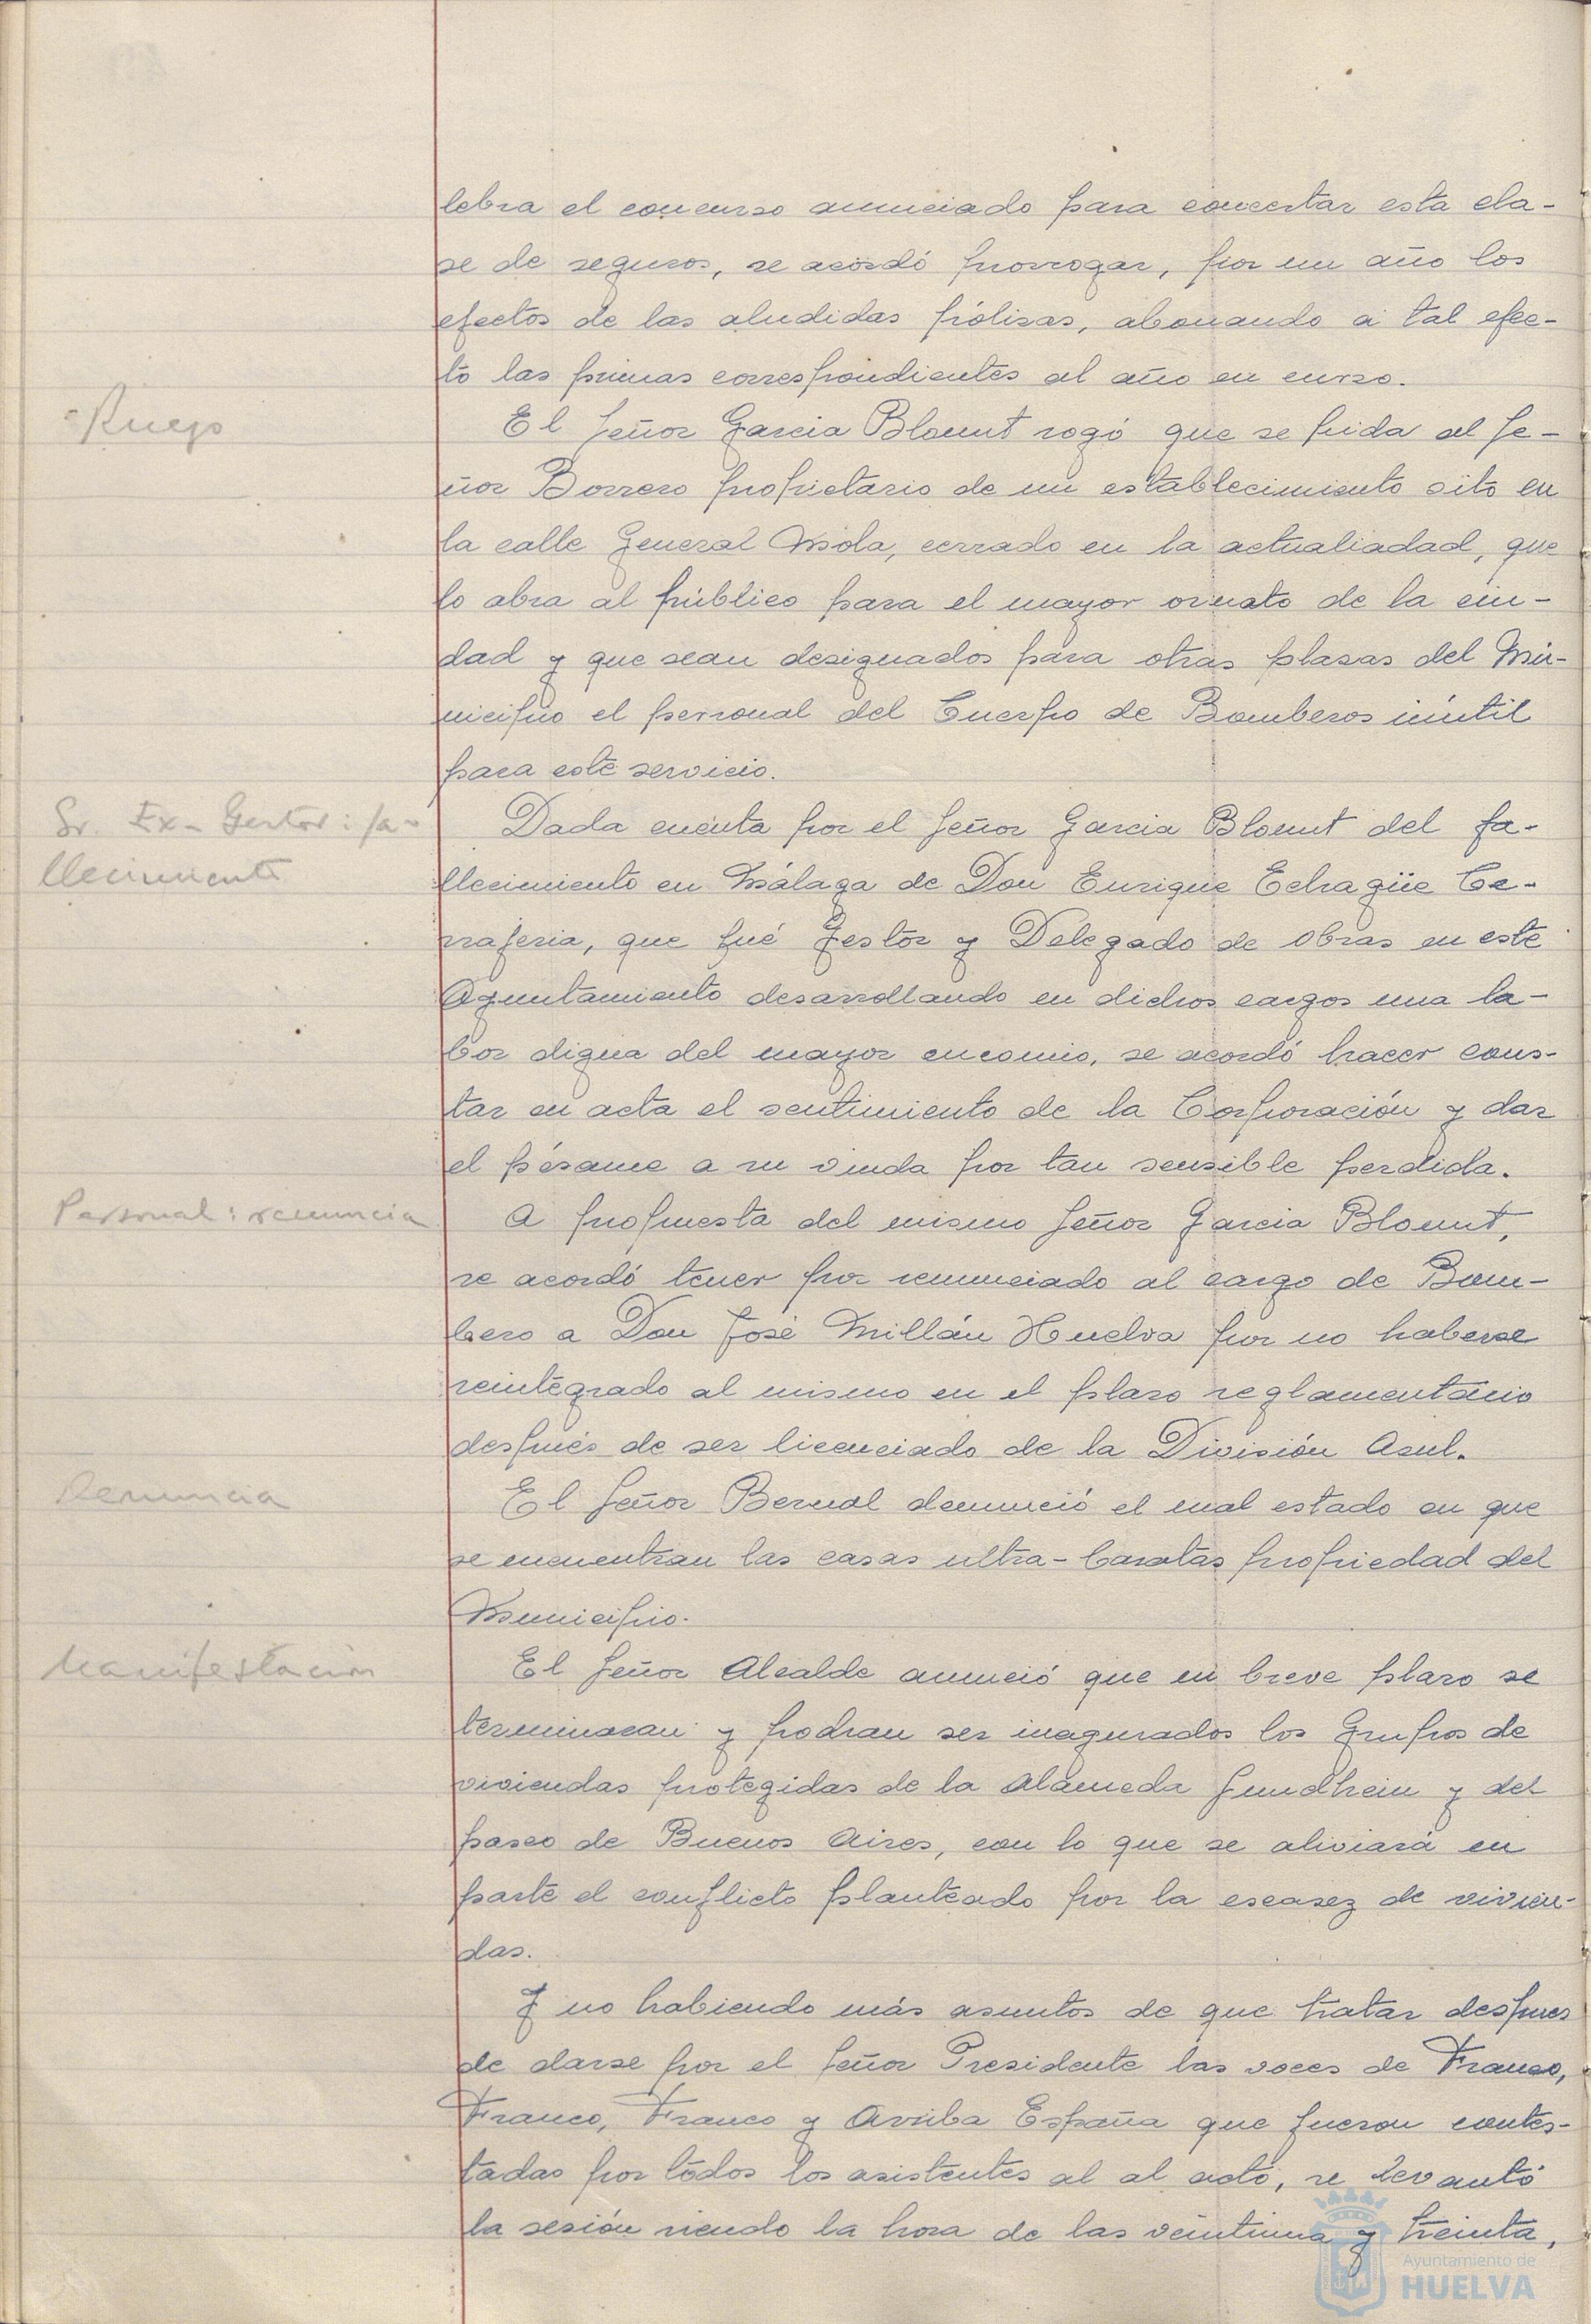 lebra el concurso anunciado para concertar esta cla-
se de seguros, se acordó prorrogar, por un año los
efectos de las aludidas pólizas, abonando a tal efec-
to las primas correspondientes al año en curso.
Ruego
El Señor Garcia Blount rogó que se pida al Se-
ñor Borrero propietario de un establecimiento sito en
la calle General Mola, cerrado en la actualiadad, que
lo abra al público para el mayor ornato de la ciu-
dad y que sean designados para otras plazas del Mu-
nicipio el personal del Cuerpo de Bomberos inútil
para este servicio.
Sr. Ex-Gestor: fa-
llecimiento
Dada cuenta por el Señor Garcia Blount del fa-
llecimiento en Málaga de Don Enrique Echagüe Ce-
rrageria, que fué Gestor y Delegado de Obras en este
Ayuntamiento desarrollando en dichos cargos una la-
bor digna del mayor encomio, se acordó hacer cons-
tar en acta el sentimiento de la Corporación y dar
el pésame a su viuda por tan sensible perdida.
Personal: renuncia
A propuesta del mismo Señor Garcia Blount,
se acordó tener por renunciado al cargo de Bom-
bero a Don José Millán Huelva por no haberse
reintegrado al mismo en el plazo reglamentario
después de ser licenciado de la División Azul.
Denuncia
El Señor Bernal denunció el mal estado en que
se encuentran las casas ultra-baratas propiedad del
Municipio.
Manifestación
El Señor Alcalde anunció que en breve plazo se
terminaran y podran ser inagurados los Grupos de
viviendas protegidas de la Alameda Sundhein y del
paseo de Buenos Aires, con lo que se aliviará en
parte el conflicto planteado por la escasez de vivien-
das.
Y no habiendo más asuntos de que tratar despues
de darse por el Señor Presidente las voces de Franco,
Franco, Franco y Arriba España que fueron contes-
tadas por todos los asistentes al al acto, se levantó
la sesión siendo la hora de las veintiuna y treinta,
Ayuntamiento de
HUELVA